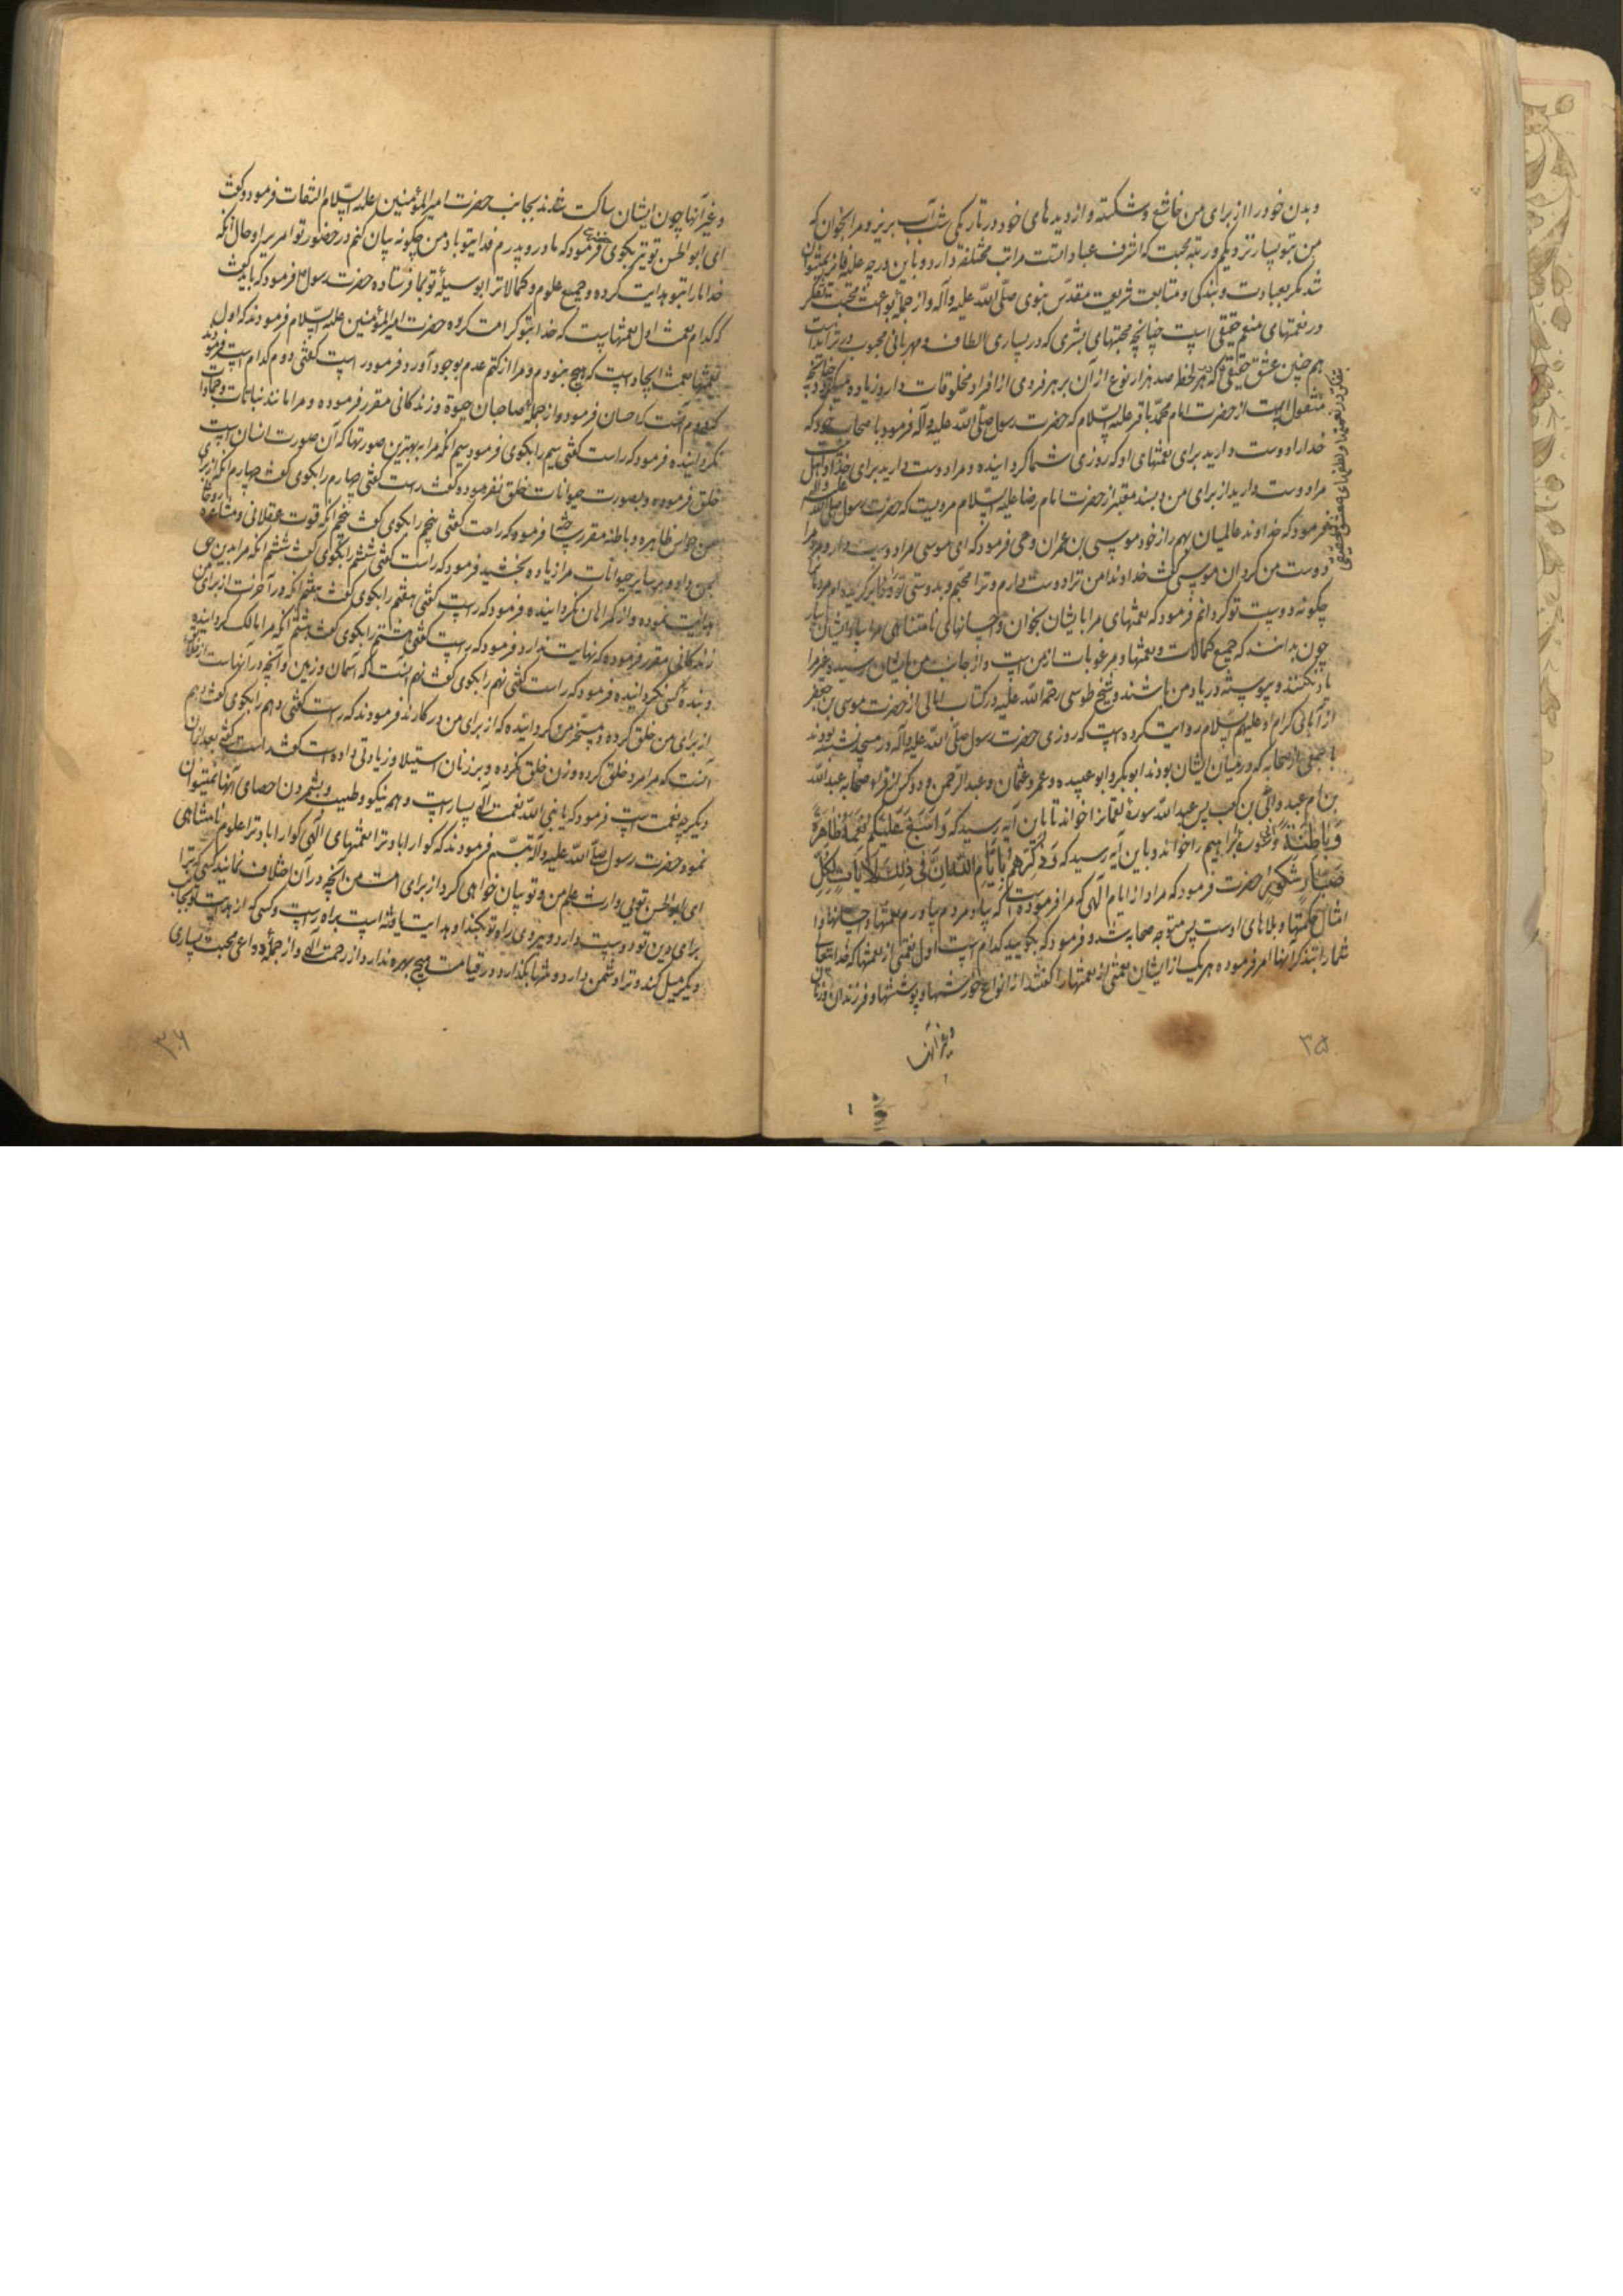 و بدن خود را از برای من خاشع و شکسته و از دیدهای خود در تاریکی شب آب بریز و مرا بخوان که
من بتو بسیار نزدیکم و رتبه محبت که اشرف عبادات است مراتب مختلفه دارد و باین درجه علیه فایز نمیتوان
شد مگر بعبادت و بندگی و متابعت شریعت مقدس نبوی صلی الله علیه و آله و از جمله بواعث محبت تفکر
در نعمتهای منعم حقیقی است چنانچه محبتهای بشری که در بسیاری الطاف و مهربانی محبوب در تزاید است
هم چنین عشق حقیقی که در هر لحظه صد هزار نوع از آن بر هر فردی از افراد مخلوقات دارد زیاده میگردد چنانچه
منقول است از حضرت امام محمد باقر علیه السلام که حضرت رسول صلی الله علیه و آله فرمود با صحاب خود که
خدا را دوست دارید برای نعمتهای او که روزی شما گردانیده و مرا دوست دارید برای خدا و اهل بیت
مرا دوست دارید از برای من و بسند معتبر از حضرت امام رضا علیه السلام مرویست که حضرت رسول صلی الله علیه و آله
فرمود که خداوند عالمیان بهم راز خود موسی بن عمران وحی فرمود که ای موسی مرا دوست دار و مردم را
دوست من گردان موسی گفت خداوندا من ترا دوست میدارم و ترا محبم و بدوستی تو
چگونه دوست تو گردانم فرمود که نعمتهای مرا بایشان بخوان و احسانهای نامتناهی مرا بیاد ایشان بیار
چون بدانند که جمیع کمالات و نعمتها و مرغوبات از من است و از جانب من بایشان رسید و غیر مرا
یاد نکنند و پیوسته در یاد من باشند و شیخ طوسی رحمة الله علیه در کتاب امالی از حضرت موسی بن جعفر
از آبای کرام او علیهم السلام روایت کرده است که روزی حضرت رسول صلی الله علیه و آله در مسجد نشسته بودند
با جمعی از صحابه که در میان ایشان بودند ابوبکر و ابو عبیده و عمر و عثمان و عبد الرحمن و دو کس از قراء صحابه عبد الله
بن ام عبد و ابی بن کعب پس عبد الله سوره لقمانرا خواند تا باین آیه رسید که وَ اَسْبَغَ عَلَیْکُمْ نِعَمَهُ ظاهِرَةً
وَ باطِنَةً و ابی سوره ابراهیم را خواند و باین آیه رسید که وَ ذَکِّرْهُمْ بِاَیّامِ اللهِ اِنَّ فی ذلِکَ لَآیاتٍ لِکُلِّ
صَبّارٍ شَکُورٍ حضرت فرمود که مراد از ایام الهی که مرا فرموده است که بیاد مردم بیاورم نعمتها و احسانها و
امثال حکمتها و بلاهای اوست پس متوجه صحابه شد و فرمود که بگویید کدام است اول نعمتی از نعمتها که خدای تعالی
شما را بتذکر آنها امر فرموده هر یک از ایشان نعمتی از نعمتها را گفتند از انواع خورشها و پوششها و فرزندان و زنان
و غیر آنها
تفکر در نعمتها و لطفهای معشوق حقیقی
۳۵
و غیر آنها چون ایشان ساکت شدند بجانب حضرت امیر المؤمنین علیه السلام التفات فرمود و گفت
ای ابو الحسن تو نیز بگوی حضرت فرمود که مادر و پدرم فدای تو باد من چگونه بیان کنم در حضور تو امریرا و حال آنکه
خدا ما را بتو هدایت کرده و جمیع علوم و کمالات را بوسیله تو بما فرستاده حضرت رسول فرمود که باید گفت
که کدام نعمت اول نعمتهاست که خدا بتو کرامت کرده حضرت امیر المؤمنین علیه السلام فرمودند که اول
نعمتها نعمت ایجاد است که هیچ نبودم و مرا از کتم عدم بوجود آورد فرمود راست گفتی دوم کدام است فرمود
که دوم آنست که احسان فرمود و از جمله صاحبان حیوة و زندگانی مقرر فرموده و مرا مانند نباتات و جمادات
نگردانیده فرمود که راست گفتی سیم را بگوی فرمود سیم آنکه مرا به بهترین صورتها که آن صورت انسان است
خلق فرموده و بصورت حیوانات خلق نفرموده گفت راست گفتی چهارم را بگوی گفت چهارم آنکه از برای
من حواس ظاهره و باطنه مقرر ساخته فرمود که راست گفتی پنجم را بگوی گفت پنجم آنکه قوت عقلانی و مشاعر
بمن داد و بر سایر حیوانات مرا زیاده بخشید فرمود که راست گفتی ششم را بگوی گفت ششم آنکه مرا بدین حق
هدایت نموده و از گمراهان نگردانیده فرمود که راست گفتی هفتم را بگوی گفت هفتم آنکه در آخرت از برای من
زندگانی مقرر فرموده که نهایت ندارد فرمود که راست گفتی هشتم را بگوی گفت هشتم آنکه مرا مالک گردانیده
و بنده کسی نگردانیده فرمود که راست گفتی نهم را بگوی گفت نهم آنست که آسمان و زمین و آنچه در آنهاست
از برای من خلق کرده و مسخر من گردانیده که از برای من در کارند فرمودند که راست گفتی دهم را بگوی گفت دهم
آنست که مرا مرد خلق کرده و زن خلق نکرده و بر زنان استیلا و زیادتی داده است گفت راست گفتی بعد از آن
دیگر چه نعمت است فرمود که یا نبی الله نعمت الهی بسیار است و همه نیکو و طیب و بشمردن احصای آنها نمیتوان
نمود حضرت رسول صلی الله علیه و آله تبسم فرمودند که گوارا باد ترا نعمتهای الهی گوارا باد ترا علوم نامتناهی
ای ابو الحسن تویی وارث علم من و تو بیان خواهی کرد از برای امت من آنچه در آن اختلاف نمایند کسی که ترا
برای دین تو دوست دارد و پیروی راه تو بکند او هدایت یافته است براه راست و کسی که از هدایت تو بجانب
دیگر میل کند و ترا دشمن دارد و تنها بگذارد در قیامت هیچ بهره ندارد از رحمت الهی و از جمله دواعی محبت بسیاری
۳۶